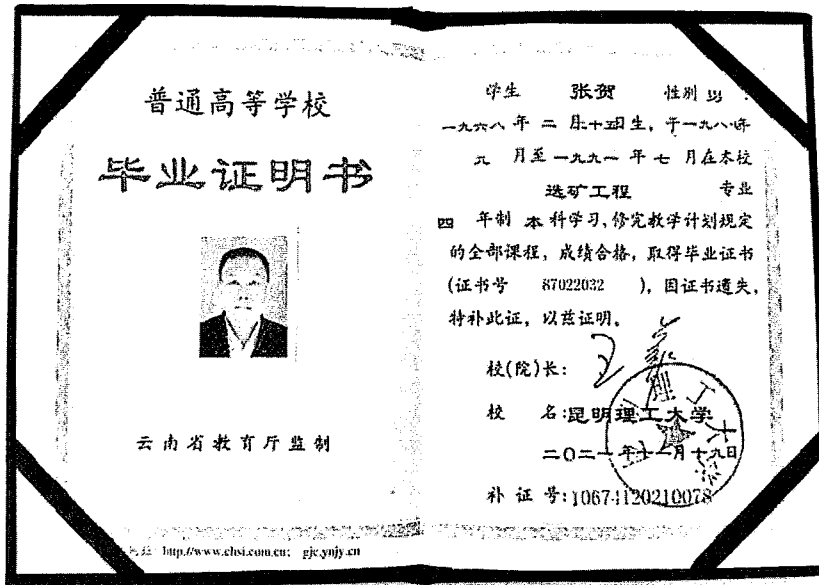 普通高等学校
毕业证明书
云南省教育厅监制
http://www.chsi.com.cn; gjc.ynjy.cn
学生 张贺 性别 男
一九六八 年 二 月十五日生, 于一九八 年
九 月至一九九一 年 七 月在本校
选矿工程 专业
四 年制 本 科学习, 修完教学计划规定
的全部课程, 成绩合格, 取得毕业证书
(证书号 87022032 ), 因证书遗失,
特补此证, 以兹证明。
校(院)长:
校 名:昆明理工大学
二〇二一年十一月十九日
补 证 号: